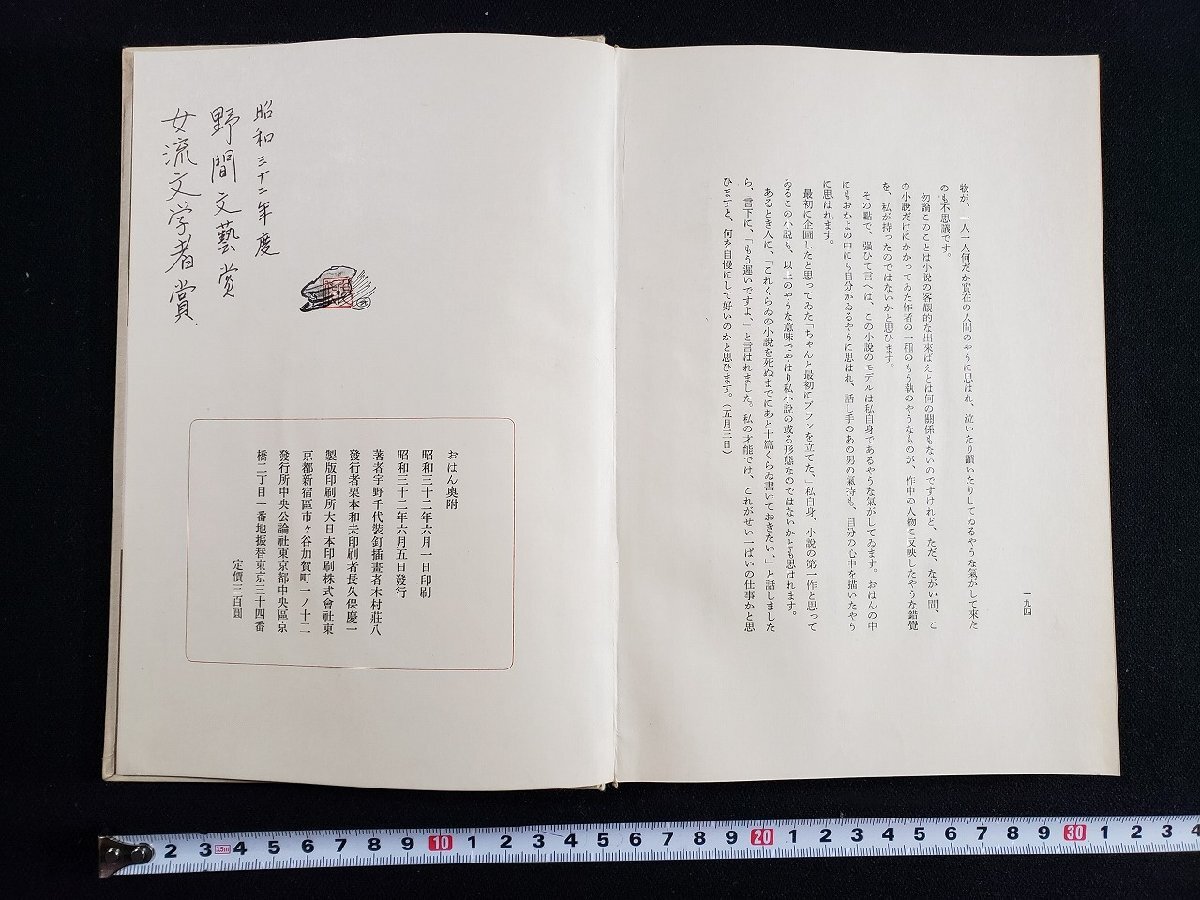 一九四
牧が、一人一人何だか實在の人間のやうに思はれ、泣いたり嘆いたりしてゐるやうな氣がして來た
のも不思議です。
勿論このことは小説の客觀的な出來ばえとは何の關係もないのですけれど、ただ、ながい間、こ
の小説だけにかかつてゐた作者の一種のもう執のやうなものが、作中の人物に反映したやうな錯覺
を、私が持つたのではないかと思ひます。
その點で、強ひて言へば、この小説のモデルは私自身であるやうな氣がしてゐます。おはんの中
にもおかよの中にも自分がゐるやうに思はれ、話し手のあの男の氣持も、自分の心中を描いたやう
に思はれます。
最初に企圖したと思つてゐた「ちゃんと最初にプランを立てた、」私自身、小説の第一作と思つて
ゐるこの小説も、以上のやうな意味でやはり私小説の或る形態なのではないかとも思はれます。
あるとき人に、「これくらゐの小説を死ぬまでにあと十篇くらゐ書いておきたい、」と話しました
ら、言下に、「もう遲いですよ、」と言はれました。私の才能では、これがせい一ぱいの仕事かと思
ひますと、何を自慢にして好いのかと思ひます。(五月三日)
昭和三十二年度
野間文藝賞
女流文学者賞
おはん奥附
昭和三十二年六月一日印刷
昭和三十二年六月五日發行
著者宇野千代裝釘插畫者木村莊八
發行者栗本和夫印刷者長久保慶一
製版印刷所大日本印刷株式會社東
京都新宿區市ヶ谷加賀町一ノ十二
發行所中央公論社東京都中央區京
橋二丁目一番地振替東京三十四番
定價三百圓
2 3 4 5 6 7 8 9 10 1 2 3 4 5 6 7 8 9 20 1 2 3 4 5 6 7 8 9 30 1 2 3 4